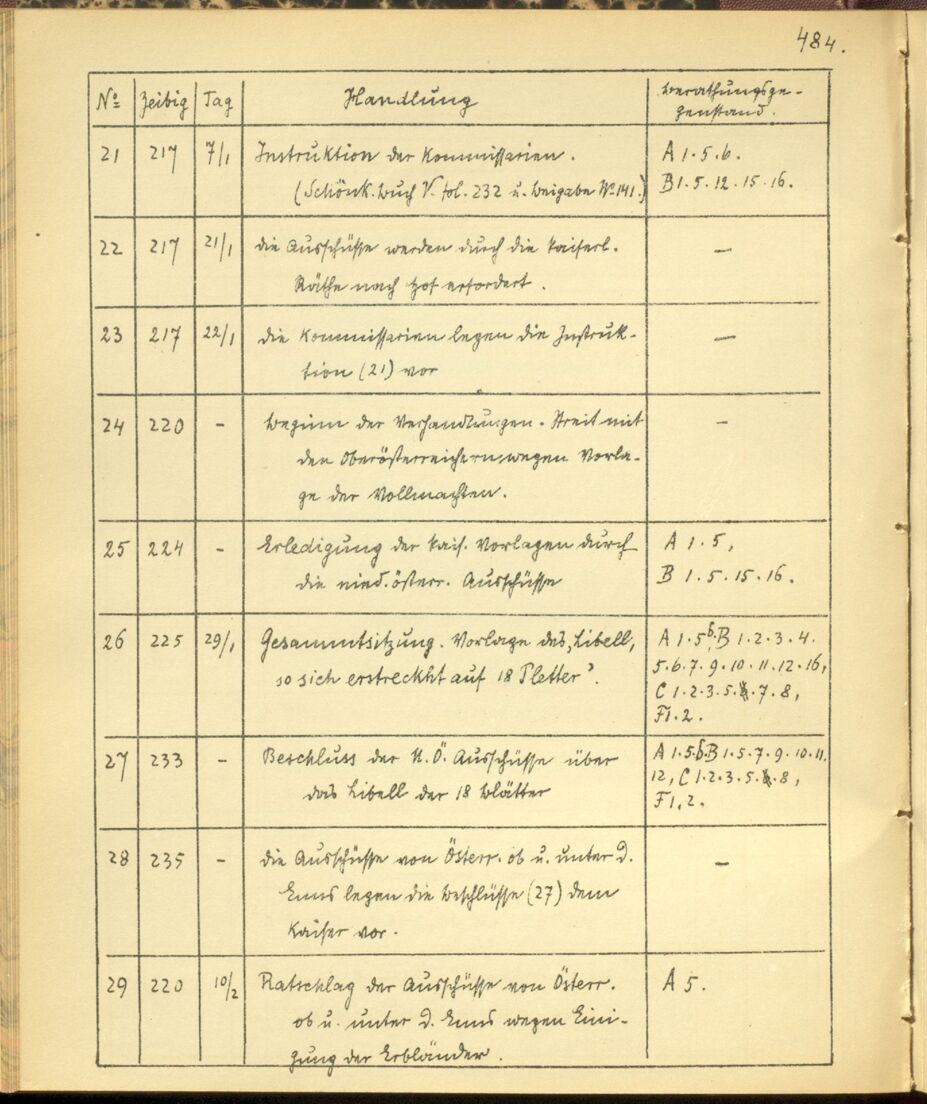 484.
No Zeibig Tag Handlung Berathungsge-
genstand.
21 217 7/1 Instruktion der Kommissarien. A 1.5.6.
(Schönk. Buch V. fol. 232 u. Beigabe No 141.) B 1.5.12.15.16.
22 217 21/1 Die Ausschüsse werden durch die kaiserl. —
Räthe nach Hof erfordert.
23 217 22/1 Die Kommissarien legen die Instruk- —
tion (21) vor
24 220 - Beginn der Verhandlungen. Streit mit -
den Oberösterreichern wegen Vorla-
ge der Vollmachten.
25 224 - Erledigung der kais. Vorlagen durch A 1.5,
die nied. österr. Ausschüsse B 1.5.15.16.
26 225 29/1 Gesammtsitzung. Vorlage des „Libell, A 1.5b. B 1.2.3.4.
so sich erstreckht auf 18 Pletter". 5.6.7.9.10.11.12.16,
C 1.2.3.5..7.8,
F 1.2.
27 233 - Beschluss der N.Ö. Ausschüsse über A 1.5b. B 1.5.7.9.10.11.
das Libell der 18 Blätter 12, C 1.2.3.5..8,
F 1.2.
28 235 - Die Ausschüsse von Österr. ob u. unter d. —
Enns legen die Beschlüsse (27) dem
Kaiser vor.
29 220 10/2 Ratschlag der Ausschüsse von Österr. A 5.
ob u. unter d. Enns wegen Eini-
gung der Erbländer.